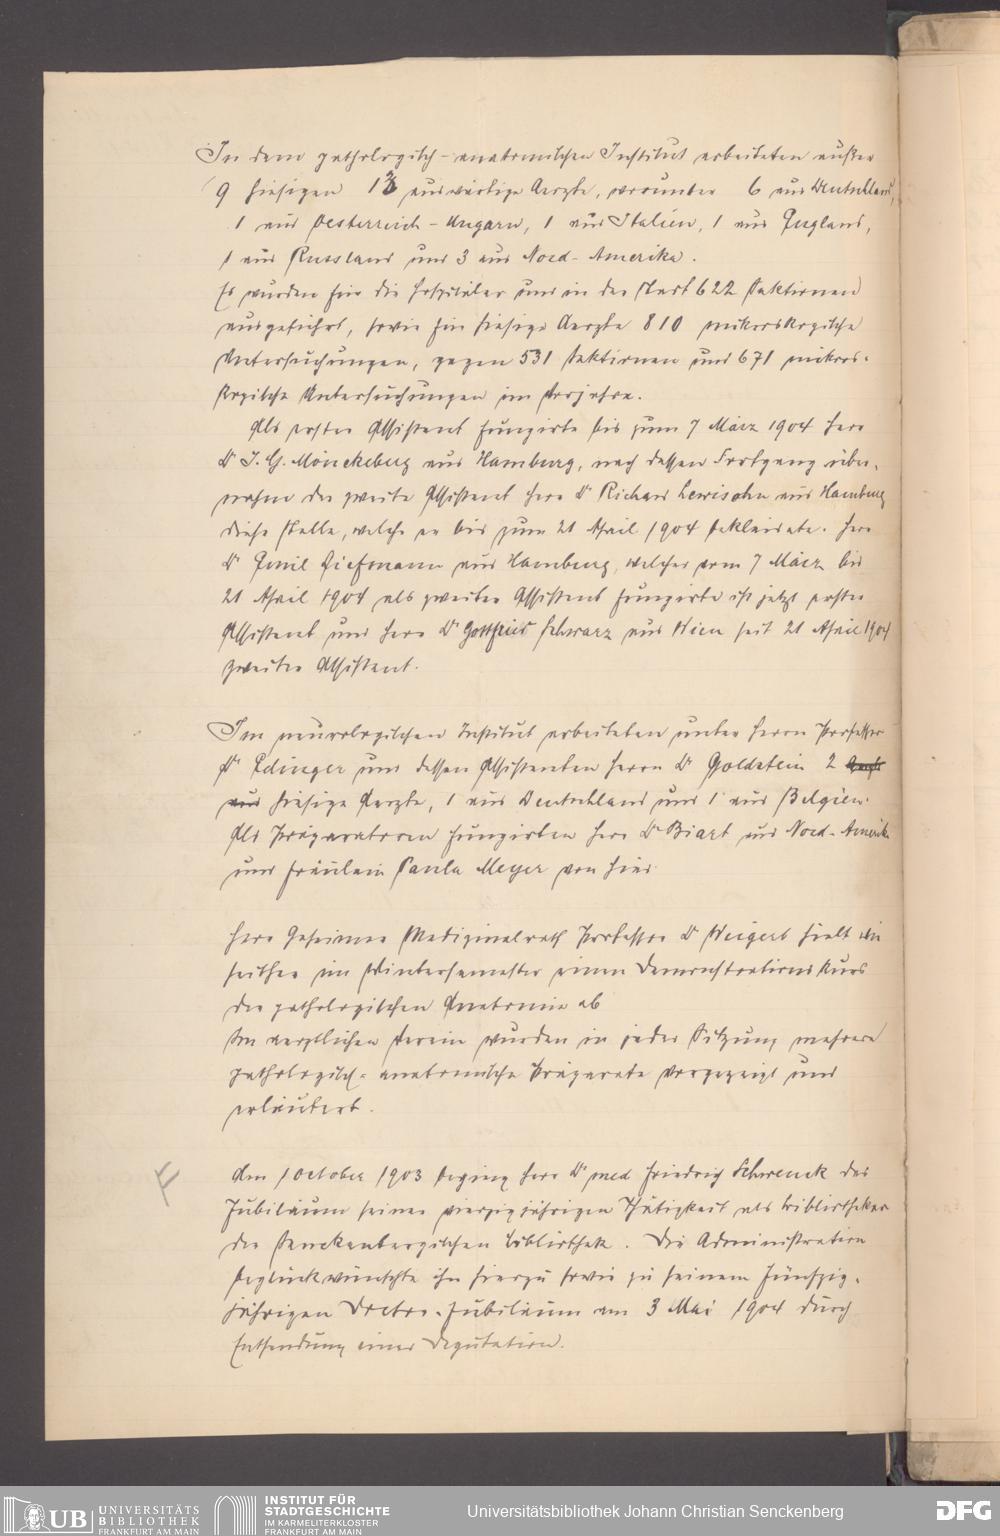 In dem pathologisch-anatomischen Institut arbeiteten außer
9 hiesigen 13 auswärtige Aerzte, worunter 6 aus Deutschland,
1 aus Oesterreich-Ungarn, 1 aus Italien, 1 aus England,
1 aus Russland und 3 aus Nord-Amerika.
Es wurden für die Hospitäler und in der Stadt 622 Sektionen
ausgeführt, sowie für hiesige Aerzte 810 mikroskopische
Untersuchungen, gegen 531 Sektionen und 671 mikros-
kopische Untersuchungen im Vorjahre.
Als erster Assistent fungirte bis zum 7 März 1904 Herr
Dr J. G. Mönckeberg aus Hamburg, nach dessen Fortgang über-
nahm der zweite Assistent Herr Dr Richard Lewisohn aus Hamburg
diese Stelle, welche er bis zum 21 April 1904 bekleidete. Herr
Dr Emil Liefmann aus Hamburg, welcher vom 7 März bis
21 April 1904 als zweiter Assistent fungirte ist jetzt erster
Assistent und Herr Dr Gottfried Schwarz aus Wien seit 21 April 1904
zweiter Assistent.
Im neurologischen Institut arbeiteten unter Herrn Professor
Dr Edinger und dessen Assistenten Herrn Dr Goldstein 2
aus hiesige Aerzte, 1 aus Deutschland und 1 aus Belgien.
Als Präparatoren fungirten Herr Dr Biart aus Nord-Amerika
und Fräulein Paula Meyer von hier
Herr Geheimer Medizinalrath Professor Dr Weigert hielt wie
seither im Wintersemester einen Demonstrationskurs
der pathologischen Anatomie ab
Im aerztlichen Verein wurden in jeder Sitzung mehrere
pathologisch-anatomische Präparate vorgezeigt und
erläutert.
Am 1 October 1903 beging Herr Dr med Friedrich Schwenck das
Jubiläum seiner vierzigjährigen Thätigkeit als Bibliothekar
der Senckenbergischen Bibliothek. Die Administration
beglückwünschte ihn hierzu sowie zu seinem fünfzig-
jährigen Doctor-Jubiläum am 3 Mai 1904 durch
Entsendung einer Deputation.
UB UNIVERSITÄTS
BIBLIOTHEK
FRANKFURT AM MAIN
INSTITUT FÜR
STADTGESCHICHTE
IM KARMELITERKLOSTER
FRANKFURT AM MAIN
Universitätsbibliothek Johann Christian Senckenberg
DFG